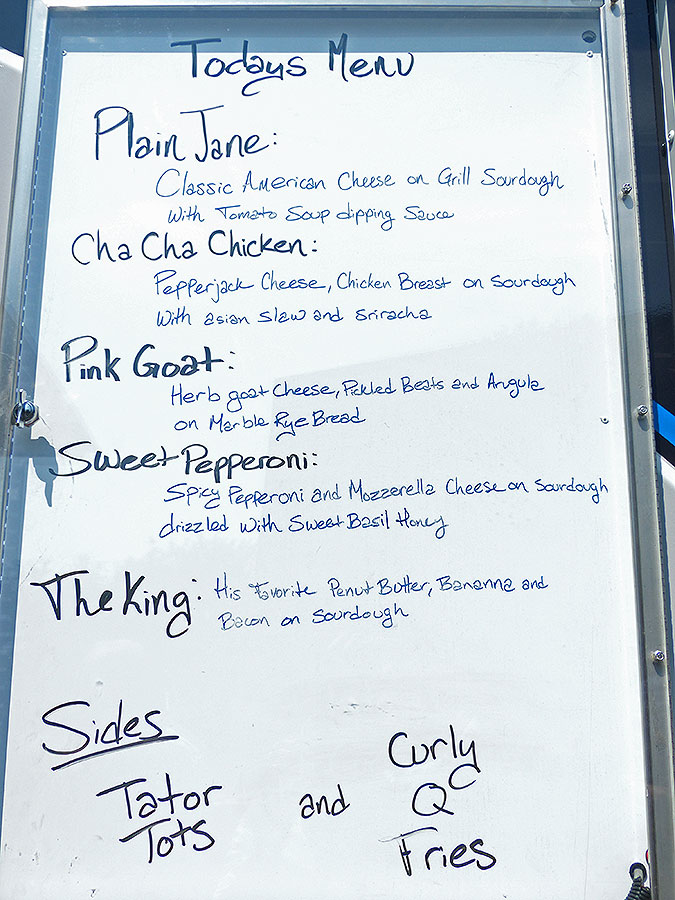 Todays Menu
Plain Jane:
Classic American Cheese on Grill Sourdough
with Tomato Soup dipping Sauce
Cha Cha Chicken:
Pepperjack Cheese, Chicken Breast on Sourdough
with asian slaw and sriracha
Pink Goat:
Herb goat Cheese, Pickled Beats and Arugula
on Marble Rye Bread
Sweet Pepperoni:
Spicy Pepperoni and Mozzerella Cheese on Sourdough
drizzled with Sweet Basil Honey
The King: His Favorite Penut Butter, Bananna and
Bacon on Sourdough
Sides
Tator Tots and Curly Q Fries